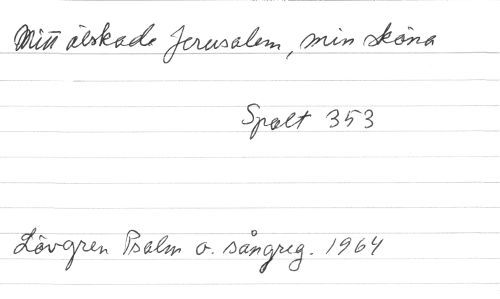 Mitt älskade Jerusalem, min sköna
Spalt 353
Lövgren Psalm o. sångreg. 1964